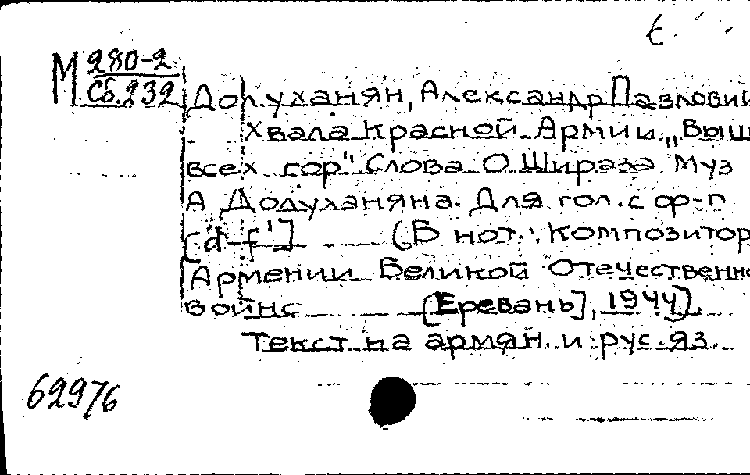 М 280-2
Сб.232
Долуханян, Александр Павлович
Хвала Красной Армии. „Выш
всех гор" Слова О.Шираза Муз
А Долуханяна. Для гол. с ф-п
[d-f']      (В нот.: Композитор
Армении Великой Отечественно
войне      [Ереван], 1944).
Текст на армян. и рус.яз.
62976